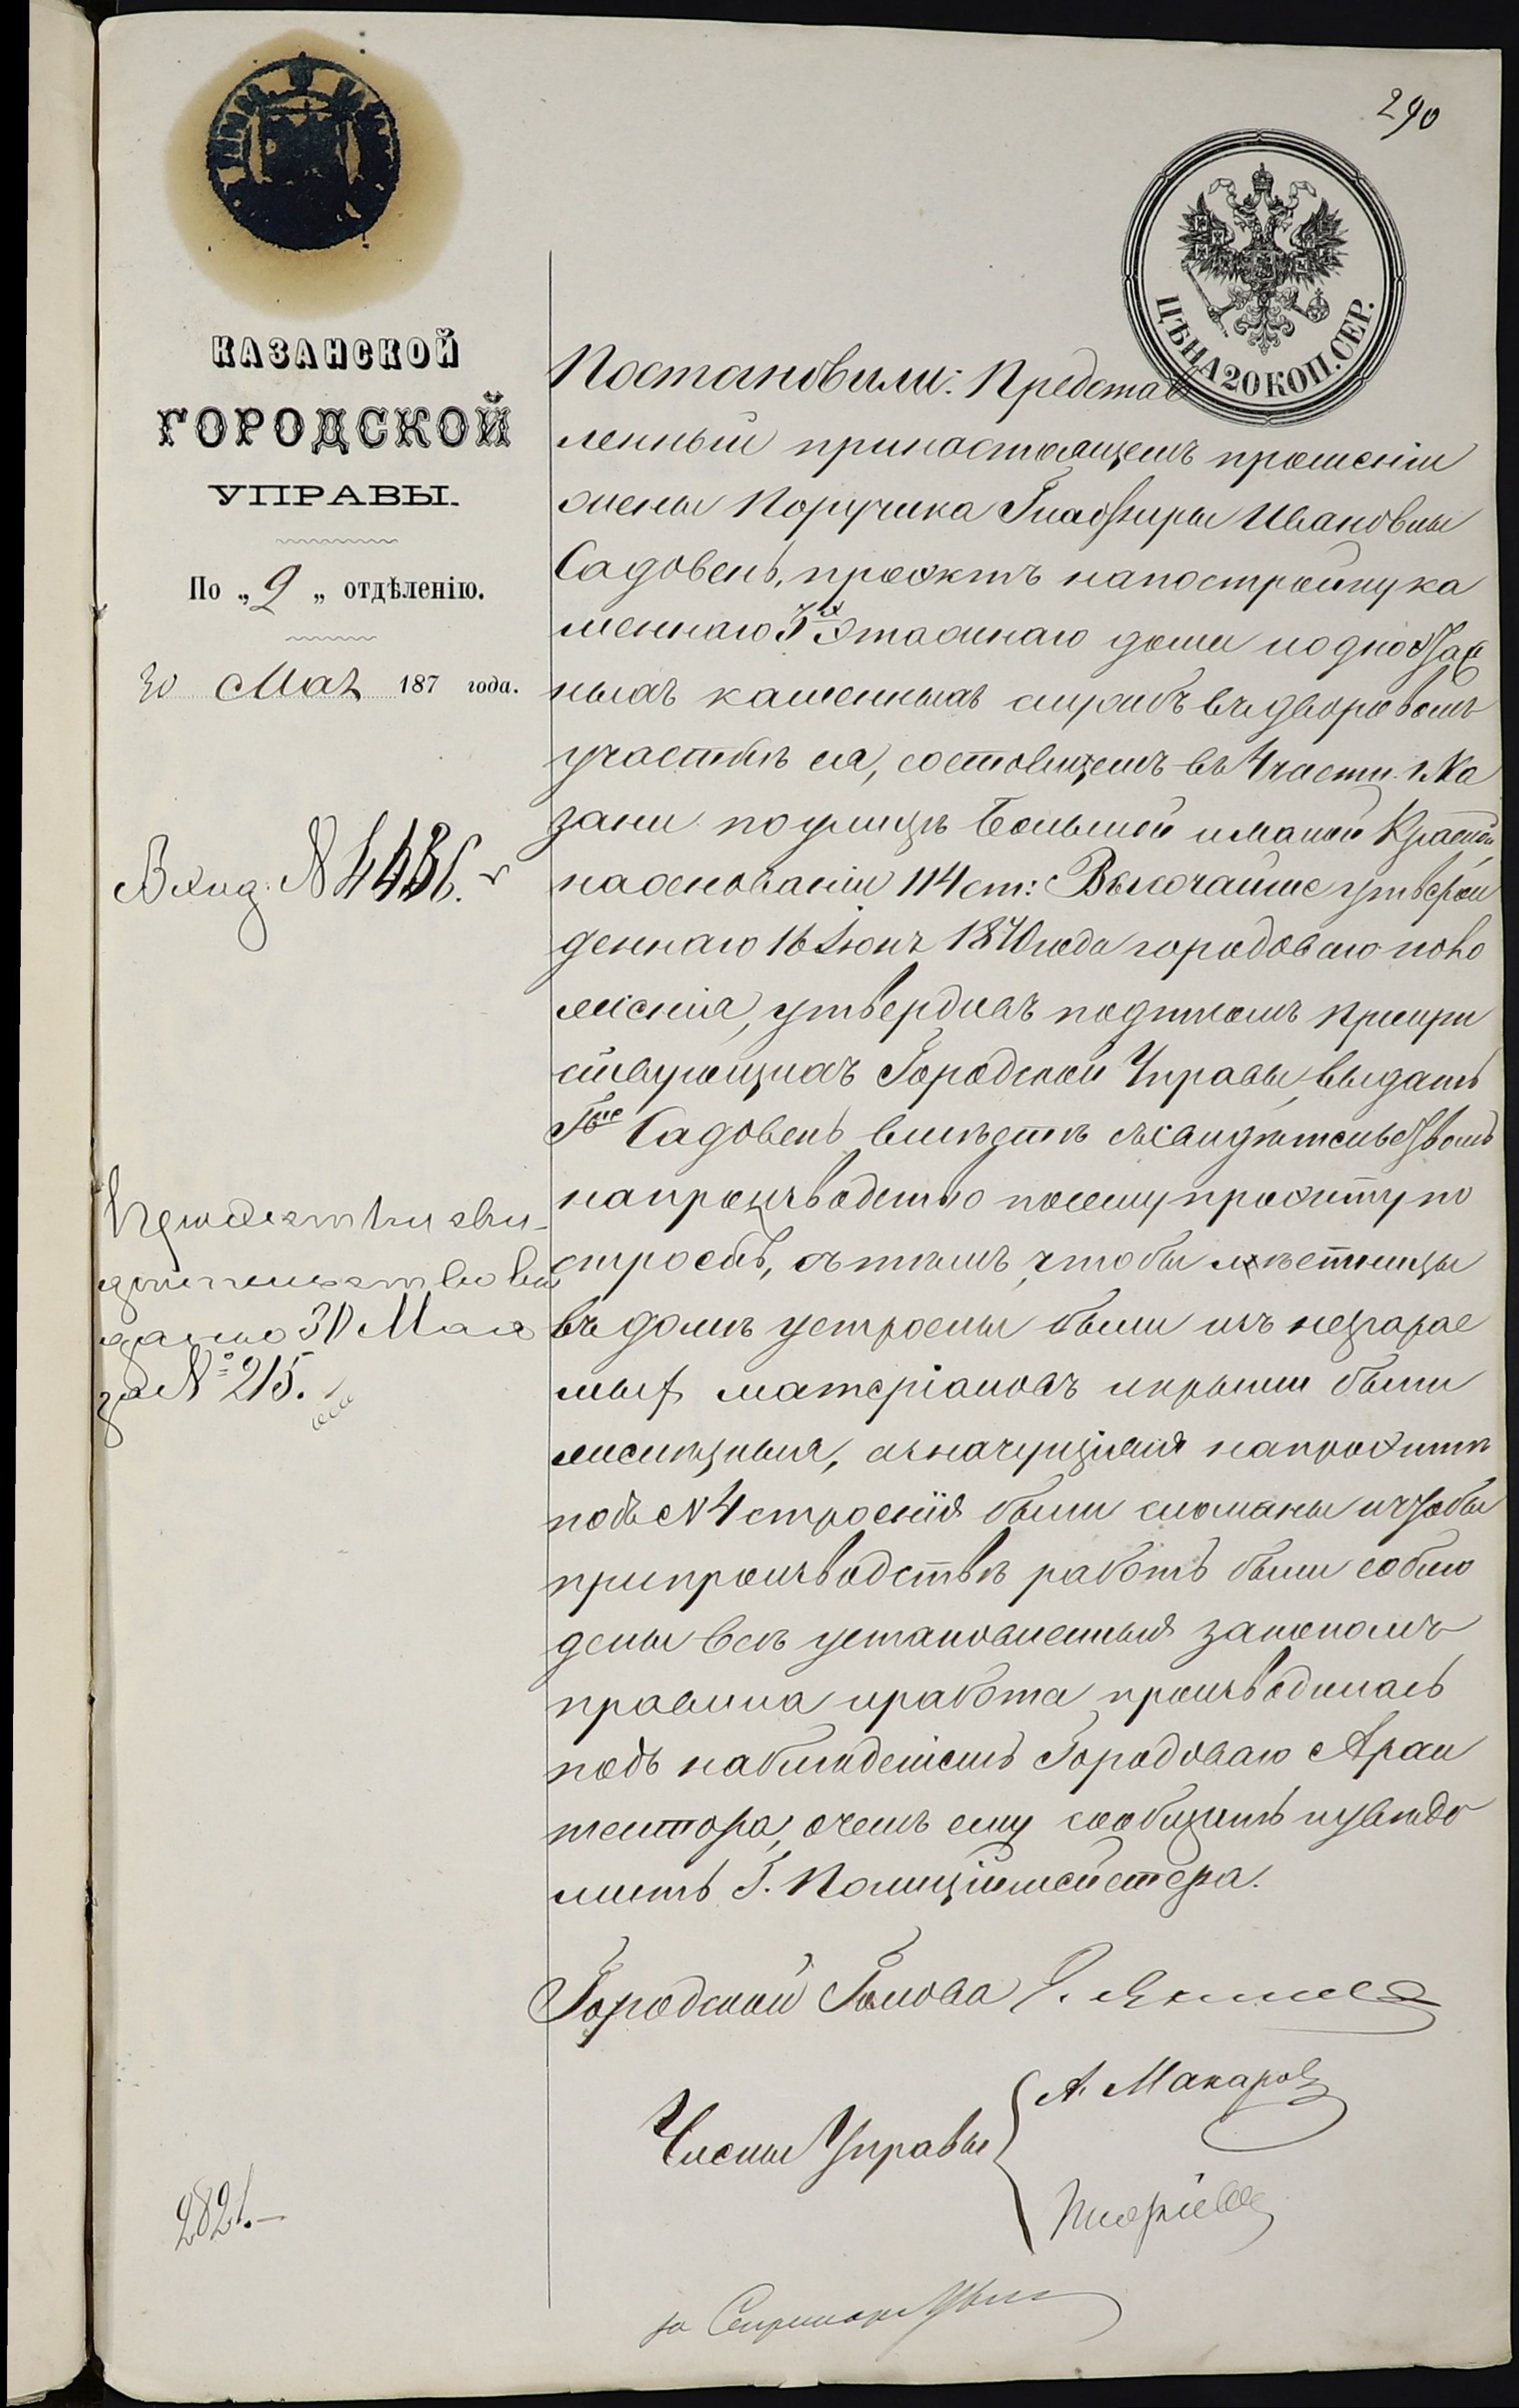 290
ЦѢНА 20 КОП. СЕР.
КАЗАНСКОЙ
ГОРОДСКОЙ
УПРАВЫ.
По „2„ отдѣленію.
30 Мая 187 года.
Вход. №
Проэктъ и сви-
дѣтельство вы
дано 30 Мая
за № 215.
2821.
Постановили: Представ
ленный принастоящемъ прошеніи
жены Поручика Глафиры Ивановны
Садовень, проэктъ напостройку ка
меннаго этажнаго дома и одноэтаж
ныхъ каменныхъ службъ въ дворовомъ
участкѣ ея, состоящемъ въ 4 части г. Ка
зани по улицѣ Большой и малой Красной,
наоснованіи 114 ст: Высочайше утверж
деннаго 16 Іюня 1870 года городоваго поло
женія, утвердивъ подписомъ Присут
ствующихъ Городской Управы, выдать
Гже Садовень вмѣстѣ съ свидѣтельствомъ
напроизводство посему проэкту по
строекъ, съ тѣмъ, чтобы лѣстницы
въ домѣ устроены были изъ незгарае
мыхъ матеріаловъ и крыши были
желѣзныя, а значущіяся напроэктѣ
подъ № 4 строенія были сломаны и чтобы
припроизводствѣ работъ были соблю
дены всѣ установленныя закономъ
правила и работа производилась
подъ наблюденіемъ Городоваго Архи
тектора, очемъ ему сообщить и увѣдо
мить Г. Полиціймейстера.
Городской Голова
Члены Управы
А. Макаровъ
за Секретаря